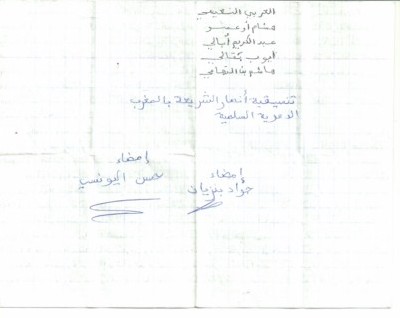 العربي النعيمي
هشام أوعضو
عبد الكريم أبالي
أيوب بقالي
هاشم بن التهامي
تنسيقية أنصار الشريعة بالمغرب
الدعوية السلمية
إمضاء
حسن اليونسي
إمضاء
جواد بنزيان